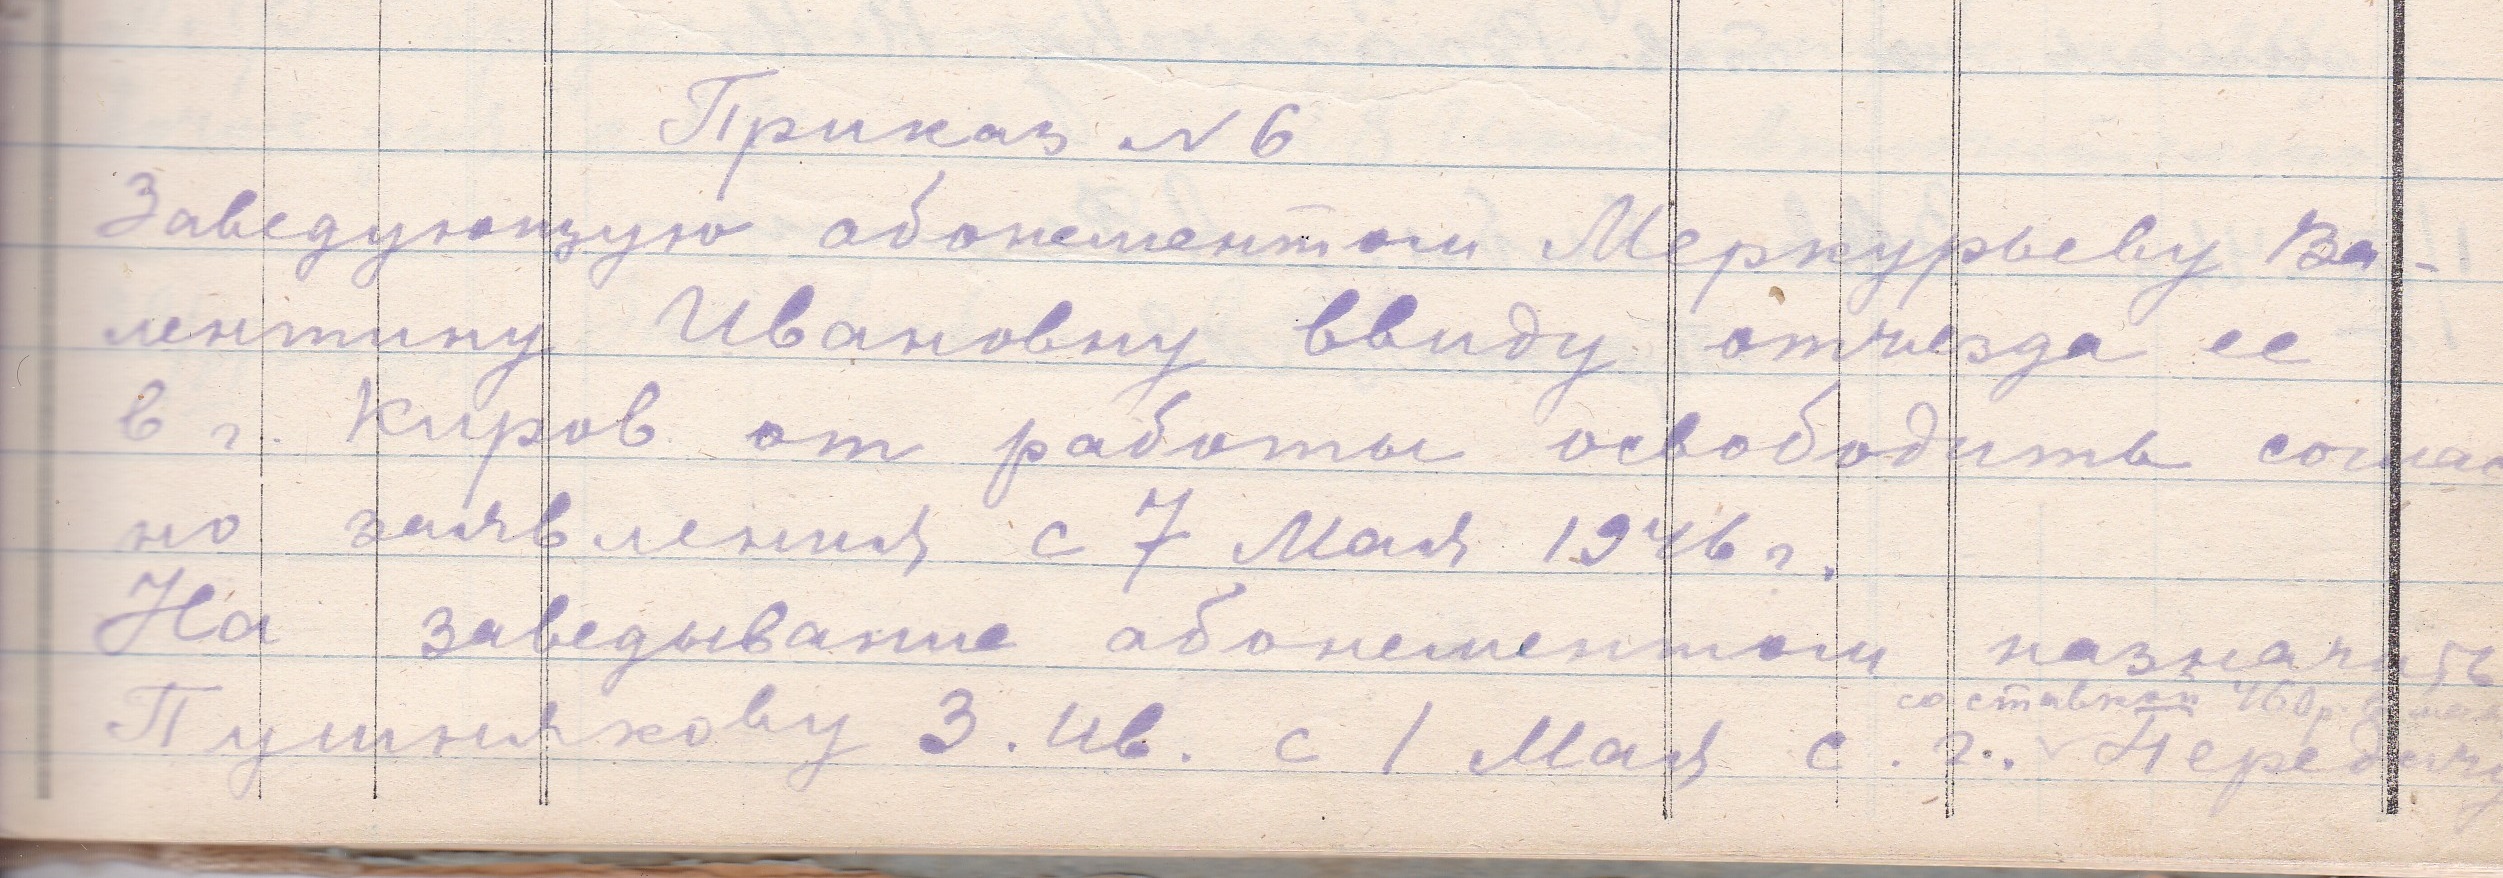 Приказ N 6
Заведующую абонементом Меркурьеву Ва-
лентину Ивановну ввиду отъезда ее
в г. Киров от работы освободить соглас
но заявления с 7 Мая 1946 г.
На заведывание абонементом назначить
со ставкой 460 р.
Пушнякову З. Ив. с 1 Мая с. г. Передачу